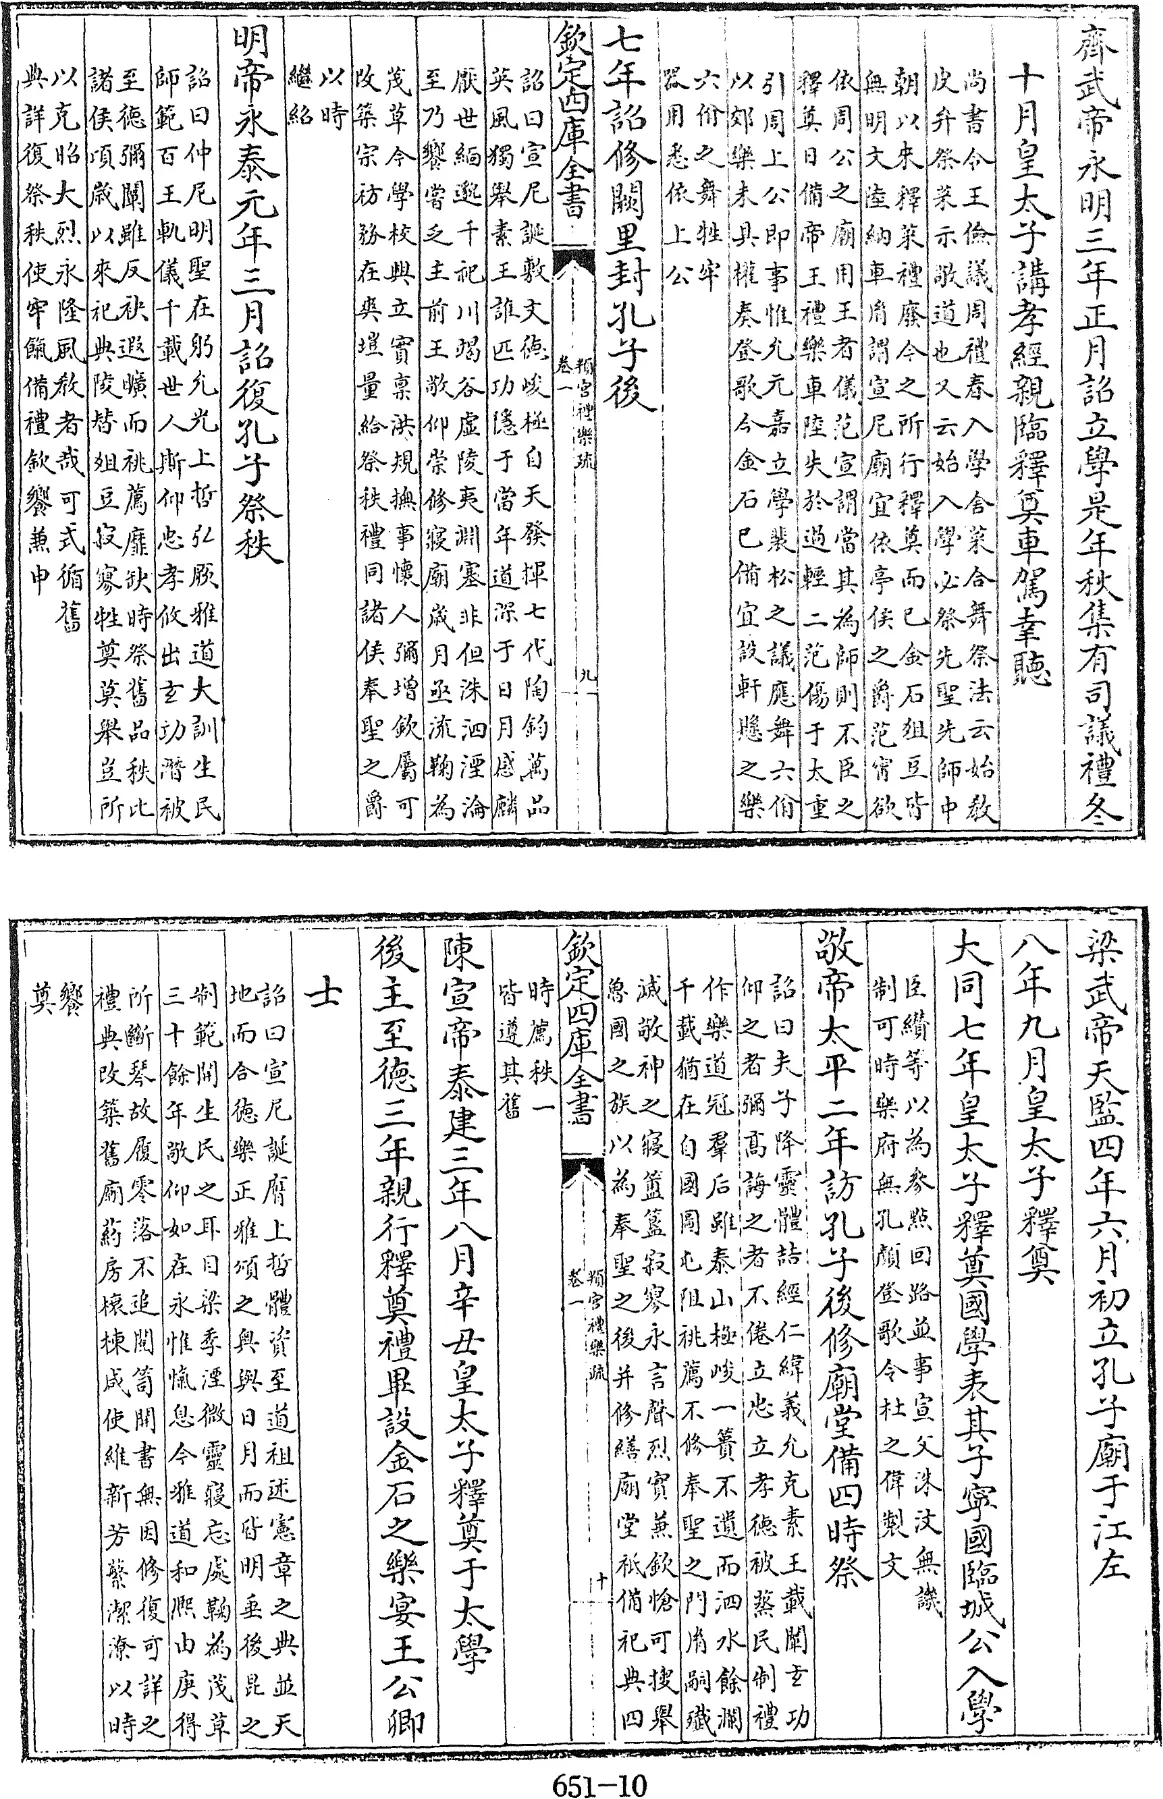 齊武帝永明三年正月詔立學是年秋集有司議禮冬
十月皇太子講孝經親臨釋奠車駕幸聽
尚書令王儉議周禮春入學舍菜合舞祭法云始教
皮弁祭菜示敬道也又云始入學必祭先聖先師中
朝以來釋菜禮廢今之所行釋奠而已金石俎豆皆
無明文陸納車胤謂宣尼廟宜依亭侯之爵范甯欲
依周公之廟用王者儀范宣謂當其為師則不臣之
釋奠日備帝王禮樂車陸失於過輕二范傷于太重
引周上公即事惟允元嘉立學裴松之議應舞六佾
以郊樂未具權奏登歌今金石已備宜設軒懸之樂
六佾之舞牲牢
器用悉依上公
七年詔修闕里封孔子後
欽定四庫全書
頖宮禮樂疏
卷一
九
詔曰宣尼誕敷文德峻極自天發揮七代陶鈞萬品
英風獨舉素王誰匹功隱于當年道深于日月感麟
厭世緬邈千祀川竭谷虛陵夷淵塞非但洙泗湮淪
至乃饗嘗乏主前王敬仰崇修寢廟歲月亟流鞠為
茂草今學校興立實稟洪規撫事懷人彌增欽屬可
改築宗祊務在爽塏量給祭秩禮同諸侯奉聖之爵
以時
繼紹
明帝永泰元年三月詔復孔子祭秩
詔曰仲尼明聖在躬允光上哲弘厥雅道大訓生民
師範百王軌儀千載世人斯仰忠孝攸出玄功潛被
至德彌闡雖反袂遐曠而祧薦靡缺時祭舊品秩比
諸侯頃歲以來祀典陵替俎豆寂寥牲奠莫舉豈所
以克昭大烈永隆風教者哉可式循舊
典詳復祭秩使牢餼備禮欽饗兼申
梁武帝天監四年六月初立孔子廟于江左
八年九月皇太子釋奠
大同七年皇太子釋奠國學表其子寧國臨城公入學
臣纘等以為參點回路並事宣父洙汶無譏
制可時樂府無孔顏登歌令杜之偉製文
敬帝太平二年訪孔子後修廟堂備四時祭
詔曰夫子降靈體喆經仁緯義允克素王載闡玄功
仰之者彌高誨之者不倦立忠立孝德被蒸民制禮
作樂道冠羣后雖泰山極峻一簣不遺而泗水餘瀾
千載猶在自國圖屯阻祧薦不修奉聖之門胤嗣殲
滅敬神之寢簠簋寂寥永言聲烈實兼欽愴可搜舉
魯國之族以為奉聖之後并修繕廟堂祇備祀典四
欽定四庫全書
頖宮禮樂疏
卷一
十
時薦秩一
皆遵其舊
陳宣帝泰建三年八月辛丑皇太子釋奠于太學
後主至德三年親行釋奠禮畢設金石之樂宴王公卿
士
詔曰宣尼誕膺上哲體資至道祖述憲章之典並天
地而合德樂正雅頌之奧與日月而皆明垂後昆之
制範開生民之耳目梁季湮微靈寢忘處鞠為茂草
三十餘年敬仰如在永惟愾息今雅道和熙由庚得
所斷琴故履零落不追閱笥開書無因修復可詳之
禮典改築舊廟蒍房檓棟咸使維新芳蘩潔潦以時
饗
奠
651-10